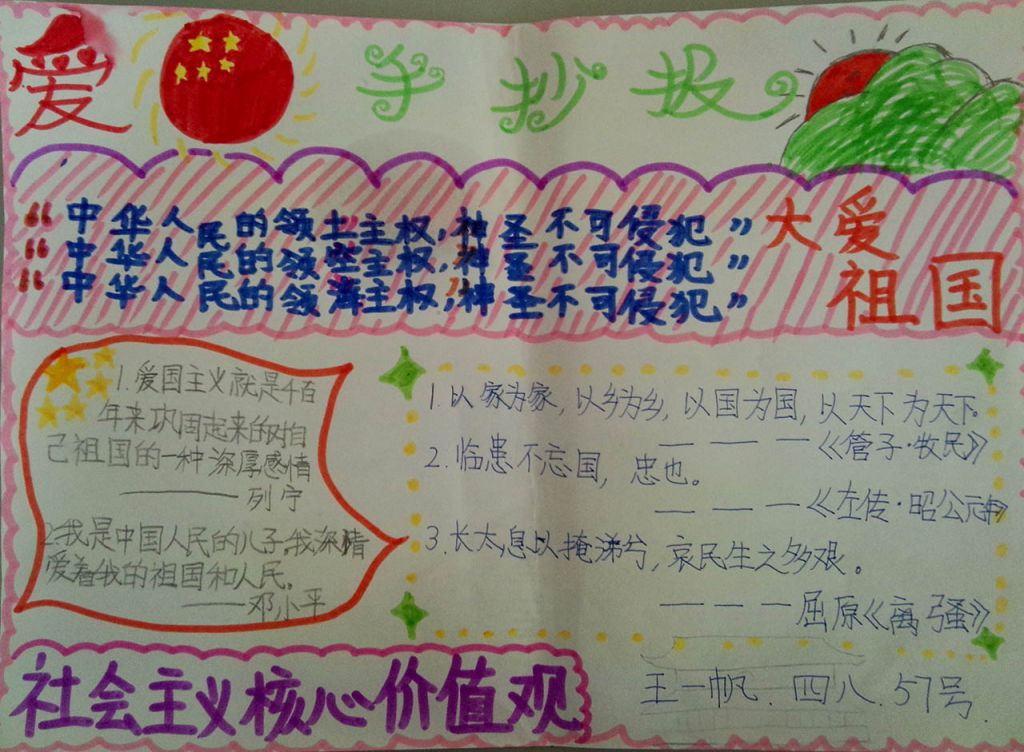 爱 手抄报
“中华人民的领土主权,神圣不可侵犯”
“中华人民的领空主权,神圣不可侵犯”
“中华人民的领海主权,神圣不可侵犯”
大爱
祖国
1.爱国主义就是千百
年来巩固起来的对自
己祖国的一种深厚感情
———列宁
2.我是中国人民的儿子,我深情
爱着我的祖国和人民。
——邓小平
1.以家为家,以乡为乡,以国为国,以天下为天下。
———《管子·牧民》
2.临患不忘国,忠也。
———《左传·昭公元年》
3.长太息以掩涕兮,哀民生之多艰。
———屈原《离骚》
社会主义核心价值观
王一帆.四八.57号.